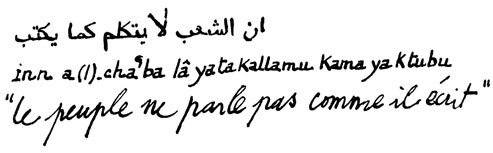 ان الشعب لا يتكلم كما يكتب
inn a(l).chaʿba lâ yatakallamu kama yaktubu
"le peuple ne parle pas comme il écrit"